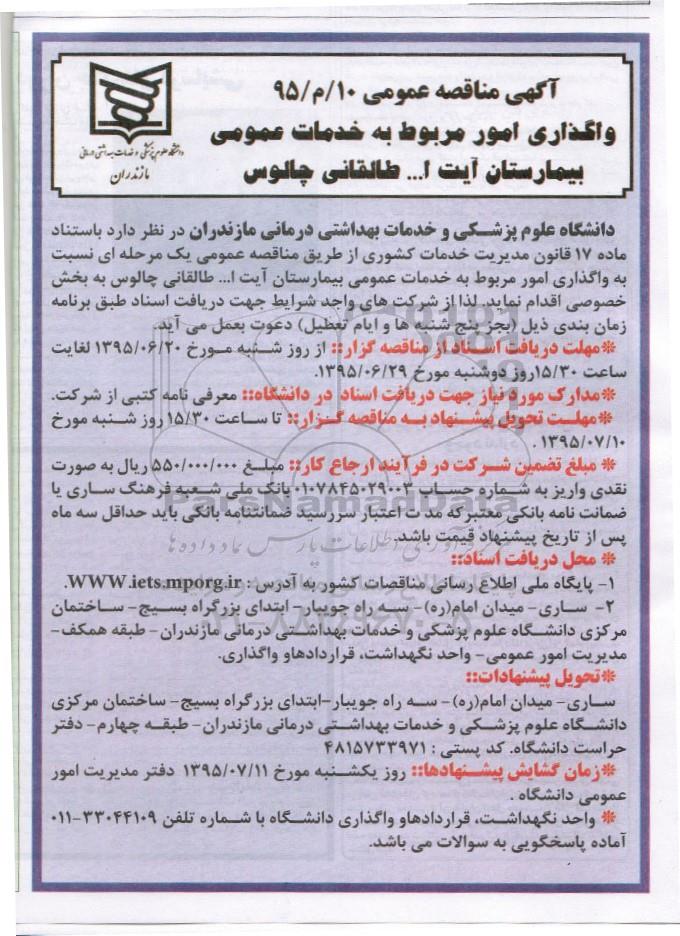 آگهی مناقصه عمومی ۱۰/م/۹۵
واگذاری امور مربوط به خدمات عمومی
بیمارستان آیت ا... طالقانی چالوس
دانشگاه علوم پزشکی و خدمات بهداشتی درمانی
مازندران
دانشگاه علوم پزشکی و خدمات بهداشتی درمانی مازندران در نظر دارد باستناد
ماده ۱۷ قانون مدیریت خدمات کشوری از طریق مناقصه عمومی یک مرحله ای نسبت
به واگذاری امور مربوط به خدمات عمومی بیمارستان آیت ا... طالقانی چالوس به بخش
خصوصی اقدام نماید. لذا از شرکت های واجد شرایط جهت دریافت اسناد طبق برنامه
زمان بندی ذیل (بجز پنج شنبه ها و ایام تعطیل) دعوت بعمل می آید.
*مهلت دریافت اسناد از مناقصه گزار:: از روز شنبه مورخ ۱۳۹۵/۰۶/۲۰ لغایت
ساعت ۱۵/۳۰روز دوشنبه مورخ ۱۳۹۵/۰۶/۲۹.
*مدارک مورد نیاز جهت دریافت اسناد در دانشگاه:: معرفی نامه کتبی از شرکت.
*مهلت تحویل پیشنهاد به مناقصه گزار:: تا ساعت ۱۵/۳۰ روز شنبه مورخ
۱۳۹۵/۰۷/۱۰.
* مبلغ تضمین شرکت در فرآیند ارجاع کار:: مبلغ ۵۵۰/۰۰۰/۰۰۰ ریال به صورت
نقدی واریز به شماره حساب ۰۱۰۷۸۴۵۰۲۹۰۰۳ بانک ملی شعبه فرهنگ ساری یا
ضمانت نامه بانکی معتبرکه مدت اعتبار سررسید ضمانتنامه بانکی باید حداقل سه ماه
پس از تاریخ پیشنهاد قیمت باشد.
* محل دریافت اسناد::
۱- پایگاه ملی اطلاع رسانی مناقصات کشور به آدرس : WWW.iets.mporg.ir.
۲- ساری- میدان امام(ره)- سه راه جویبار- ابتدای بزرگراه بسیج- ساختمان
مرکزی دانشگاه علوم پزشکی و خدمات بهداشتی درمانی مازندران- طبقه همکف-
مدیریت امور عمومی- واحد نگهداشت، قراردادهاو واگذاری.
*تحویل پیشنهادات::
ساری- میدان امام(ره)- سه راه جویبار-ابتدای بزرگراه بسیج- ساختمان مرکزی
دانشگاه علوم پزشکی و خدمات بهداشتی درمانی مازندران- طبقه چهارم- دفتر
حراست دانشگاه. کد پستی : ۴۸۱۵۷۳۳۹۷۱
*زمان گشایش پیشنهادها:: روز یکشنبه مورخ ۱۳۹۵/۰۷/۱۱ دفتر مدیریت امور
عمومی دانشگاه .
* واحد نگهداشت، قراردادهاو واگذاری دانشگاه با شماره تلفن ۳۳۰۴۴۱۰۹-۰۱۱
آماده پاسخگویی به سوالات می باشد.
ParsNamadData